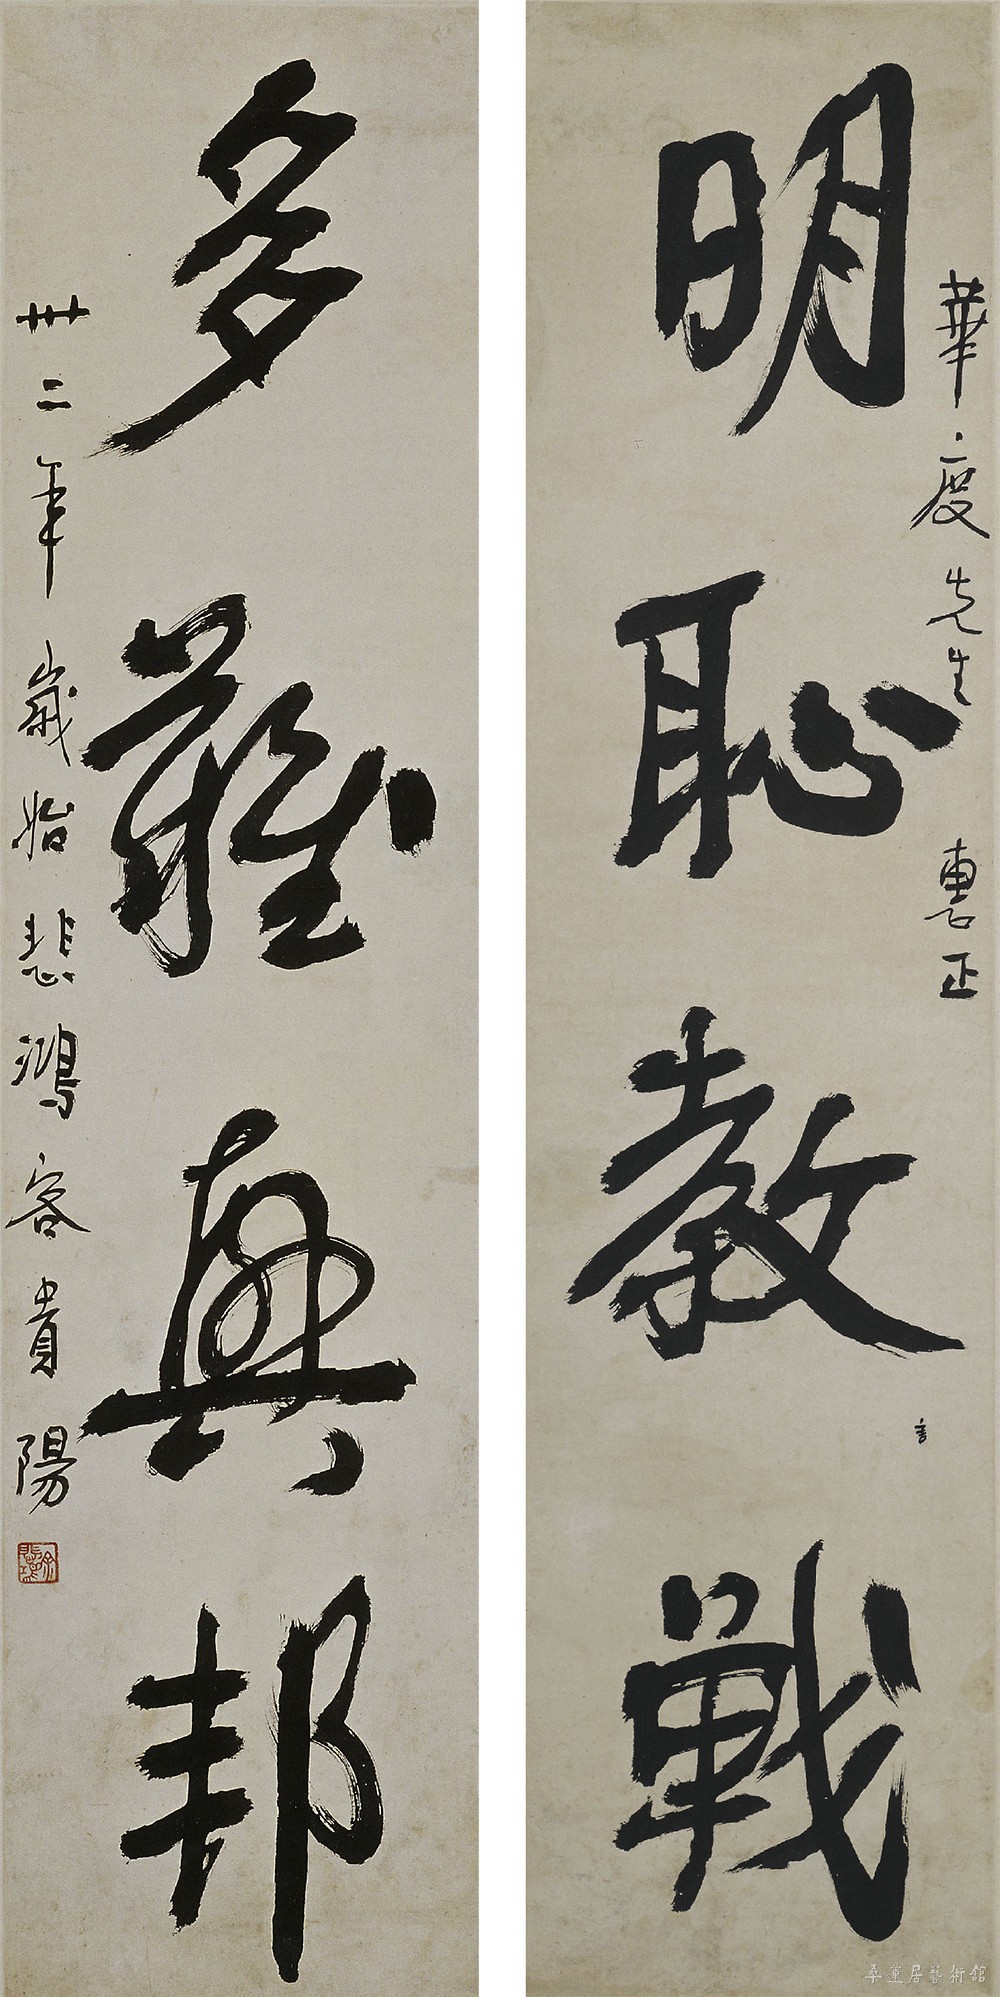 華度先生 惠正
明恥教戰
言
多難興邦
卅二年歲始悲鴻客貴陽
徐悲鴻
桑蓮居藝術館